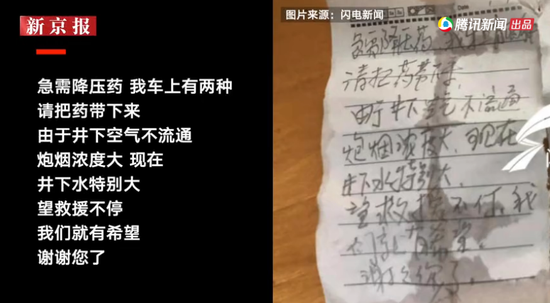 新京报
急需降压药 我车上有两种
请把药带下来
由于井下空气不流通
炮烟浓度大 现在
井下水特别大
望救援不停
我们就有希望
谢谢您了
图片来源：闪电新闻
腾讯新闻 出品
Date
急需降压药
请把药带下来，
由于井下空气不流通
炮烟浓度大，现在
井下水特别大，
望救援不停，我
们就有希望，
谢谢您了。